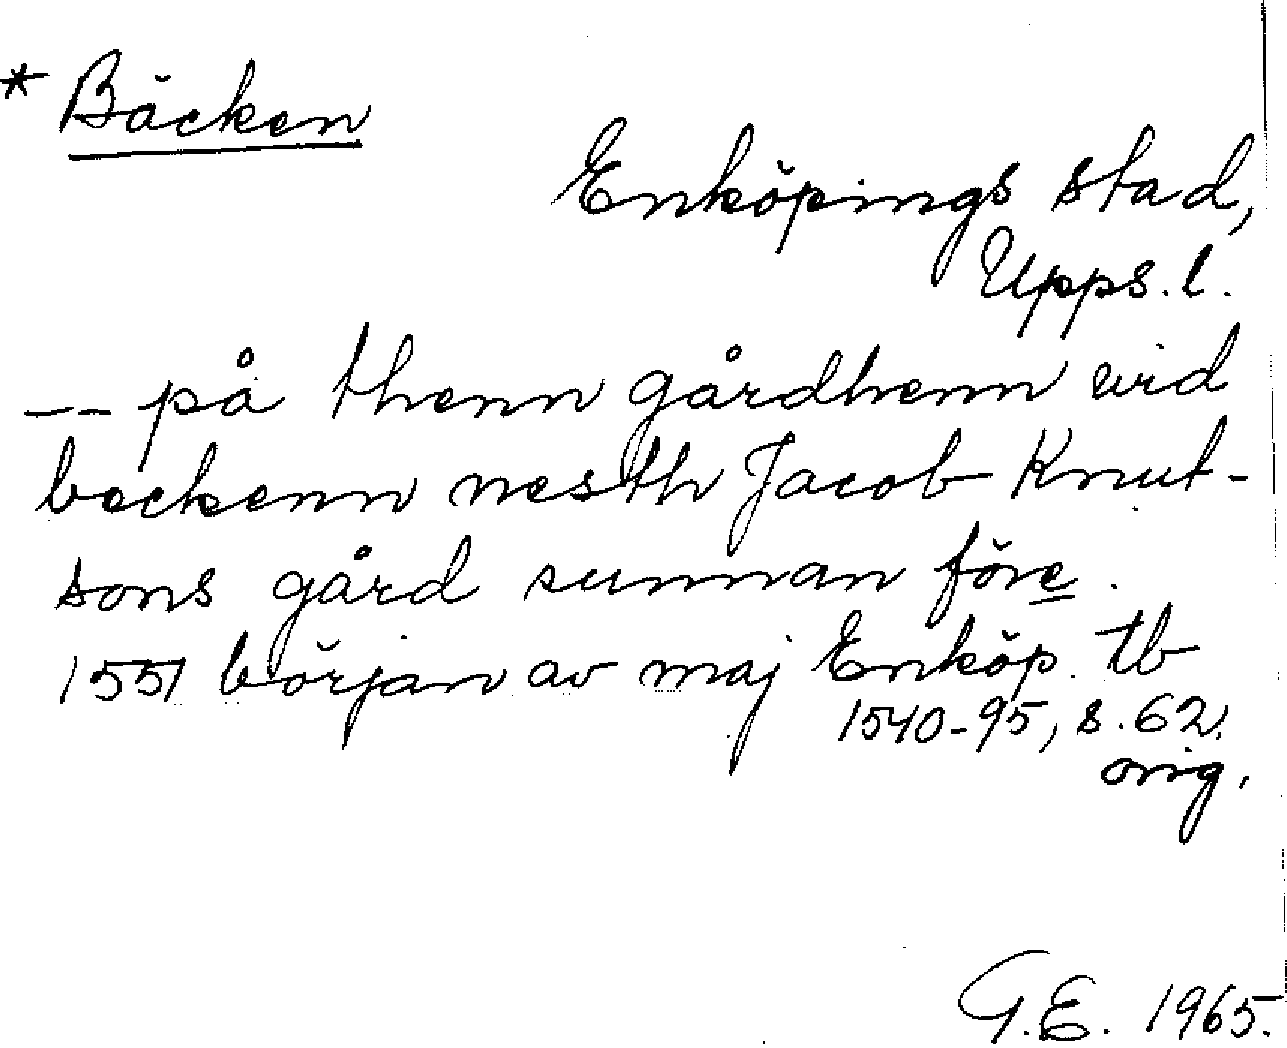 * Bäcken
Enköpings stad,
Upps. l.
-- på thenn gårdhenn vid
beckenn nesth Jacob Knut-
sons gård sunnan före.
1551 början av maj Enköp. tb
1540-95, s. 62.
orig.
G.E. 1965.